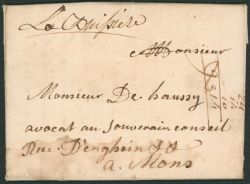 La Buissiere
Monsieur
Monsieur De haussy
avocat au souverain conseil
Rue D'enghein
a Mons